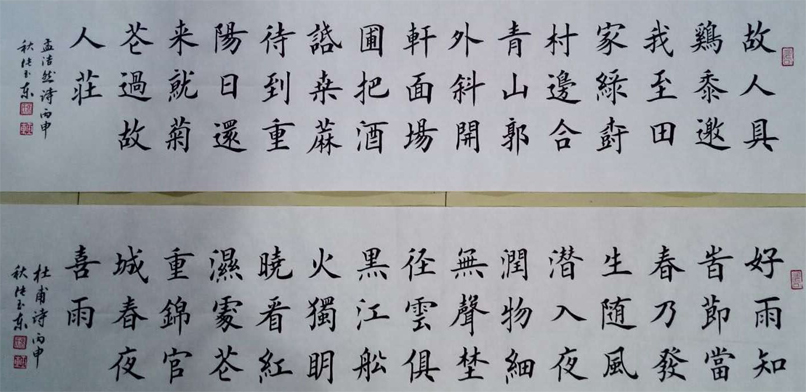 故人具
鷄黍邀
我至田
家綠尌
村邊合
青山郭
外斜開
軒面場
圃把酒
話桒蔴
待到重
陽日還
来就菊
花過故
人荘
孟浩然诗丙申
秋张玉東
好雨知
旹節當
春乃發
生随風
潜入夜
潤物細
無聲埜
径雲俱
黒江舩
火獨眀
曉看紅
濕處花
重錦官
城春夜
喜雨
杜甫诗丙申
秋张玉東